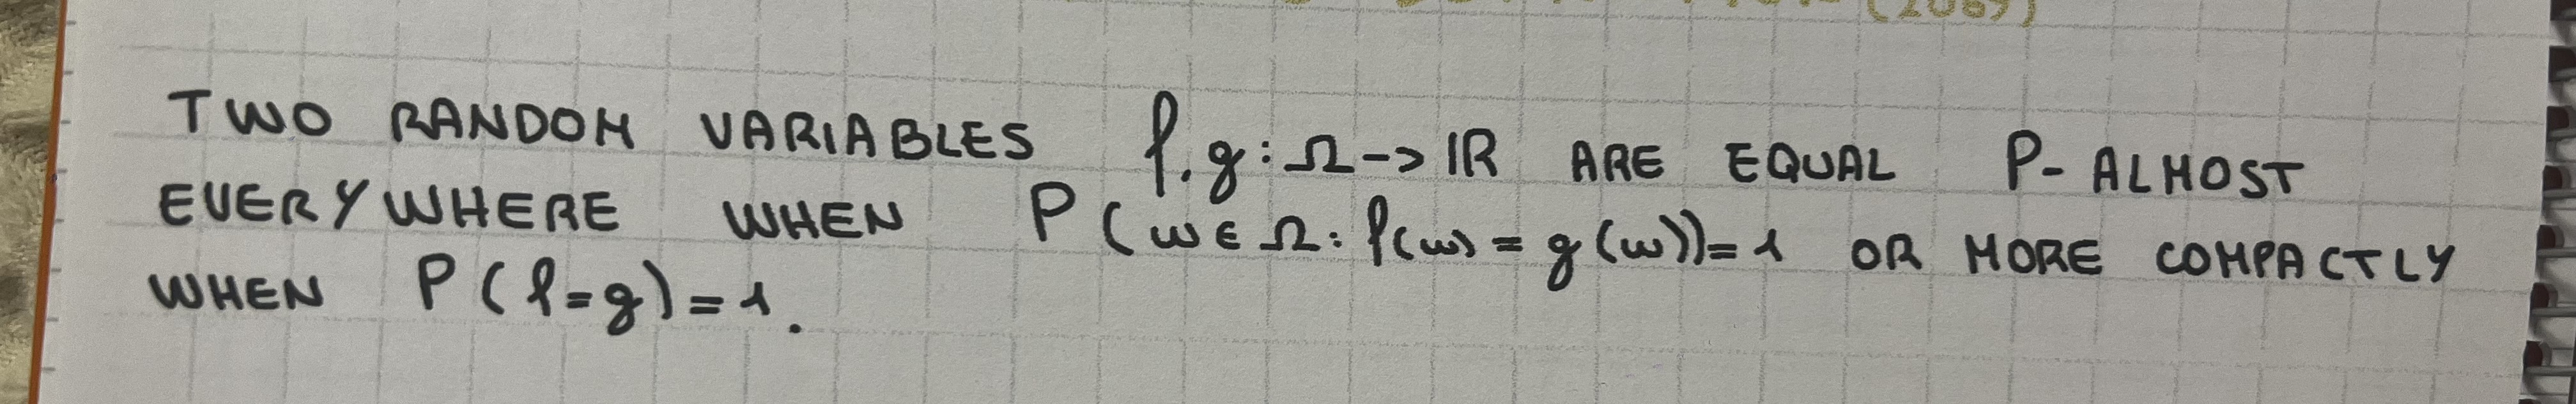 (2069)
TWO RANDOM VARIABLES f,g: Ω -> ℝ ARE EQUAL P-ALMOST
EVERYWHERE WHEN P(ω ∈ Ω: f(ω) = g(ω))=1 OR MORE COMPACTLY
WHEN P(f=g)=1.